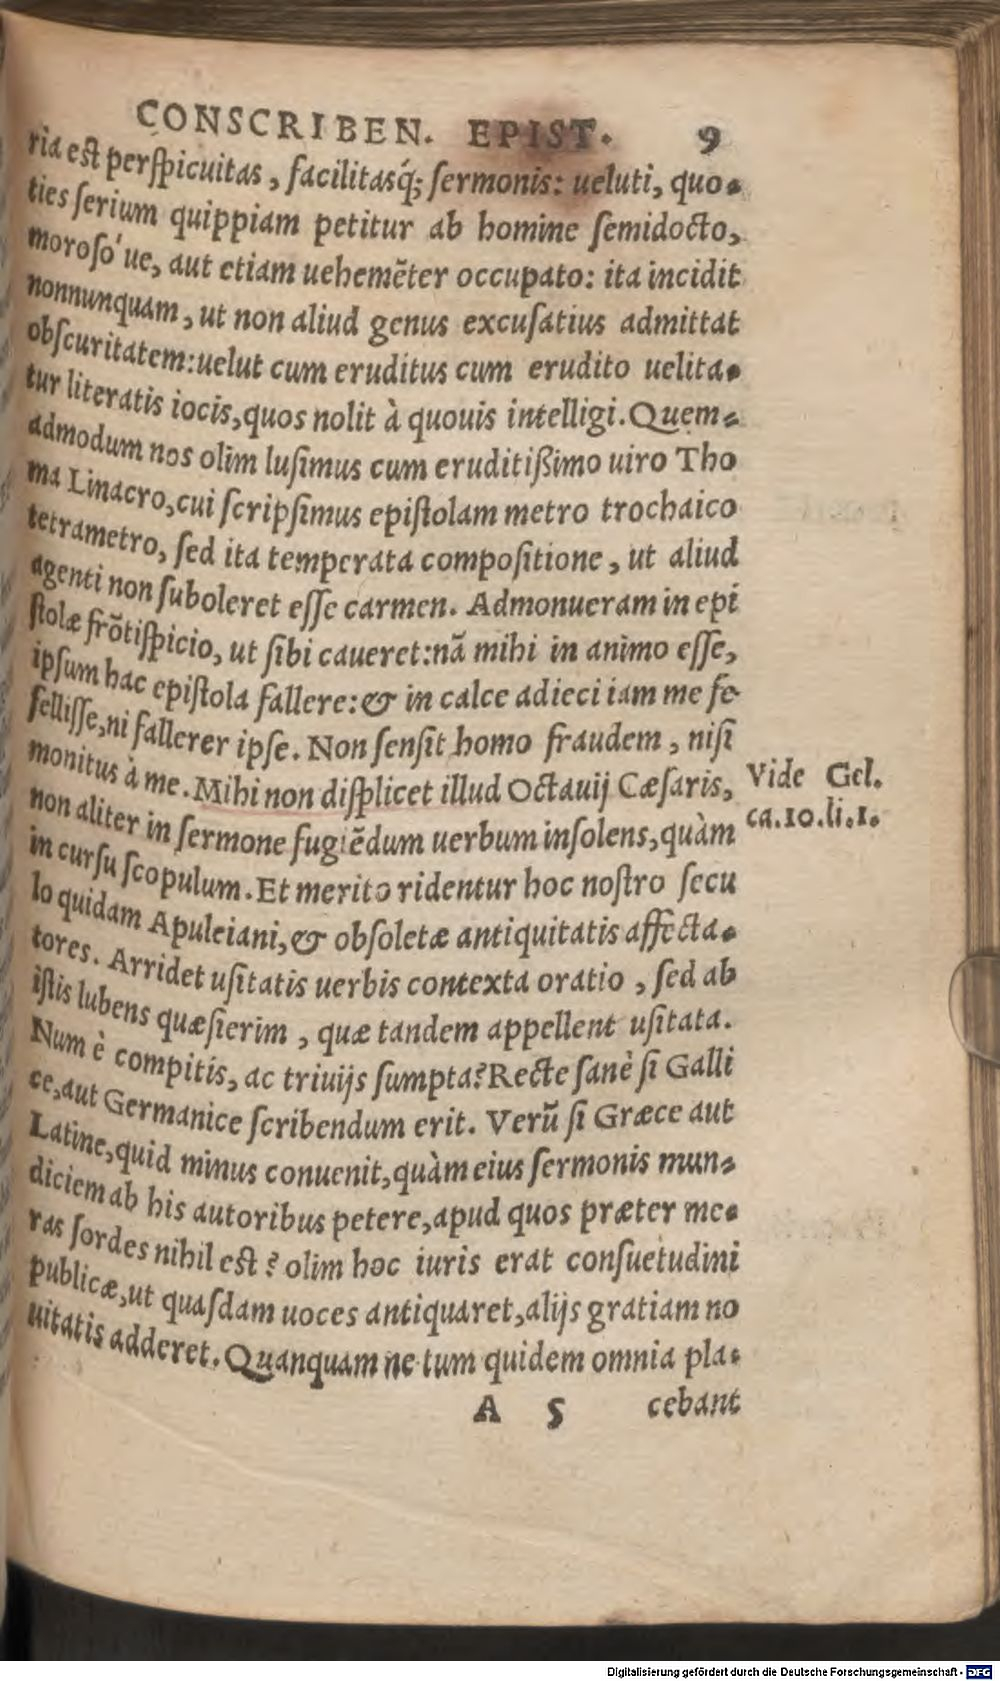 CONSCRIBEN. EPIST. 9
ria est perſpicuitas, facilitasq́; ſermonis: ueluti, quo-
ties ſerium quippiam petitur ab homine ſemidocto,
moroſo´ue, aut etiam uehemẽter occupato: ita incidit
nonnunquam, ut non aliud genus excuſatius admittat
obſcuritatem: uelut cum eruditus cum erudito uelita-
tur literatis iocis, quos nolit à quouis intelligi. Quem-
admodum nos olim luſimus cum eruditiſſimo uiro Tho
ma Linacro, cui ſcripſimus epiſtolam metro trochaico
tetrametro, ſed ita temperata compoſitione, ut aliud
agenti non ſuboleret eſſe carmen. Admonueram in epi
ſtolæ frõtiſpicio, ut ſibi caueret: nã mihi in animo eſſe,
ipſum hac epiſtola fallere: & in calce adieci iam me fe
felliſſe, ni fallerer ipſe. Non ſenſit homo fraudem, niſi
monitus à me. Mihi non diſplicet illud Octauij Cæſaris,
Vide Gel.
ca.10.li.1.
non aliter in ſermone fugiẽdum uerbum inſolens, quàm
in curſu ſcopulum. Et merito ridentur hoc noſtro ſecu
lo quidam Apuleiani, & obſoletæ antiquitatis affecta-
tores. Arridet uſitatis uerbis contexta oratio, ſed ab
iſtis lubens quæſierim, quæ tandem appellent uſitata.
Num è compitis, ac triuijs ſumpta? Recte ſanè ſi Galli
ce, aut Germanice ſcribendum erit. Verũ ſi Græce aut
Latine, quid minus conuenit, quàm eius ſermonis mun-
diciem ab his autoribus petere, apud quos præter me-
ras ſordes nihil eſt? olim hoc iuris erat conſuetudini
publicæ, ut quaſdam uoces antiquaret, alijs gratiam no
uitatis adderet. Quanquam ne tum quidem omnia pla-
A 5 cebant
Digitalisierung gefördert durch die Deutsche Forschungsgemeinschaft - DFG